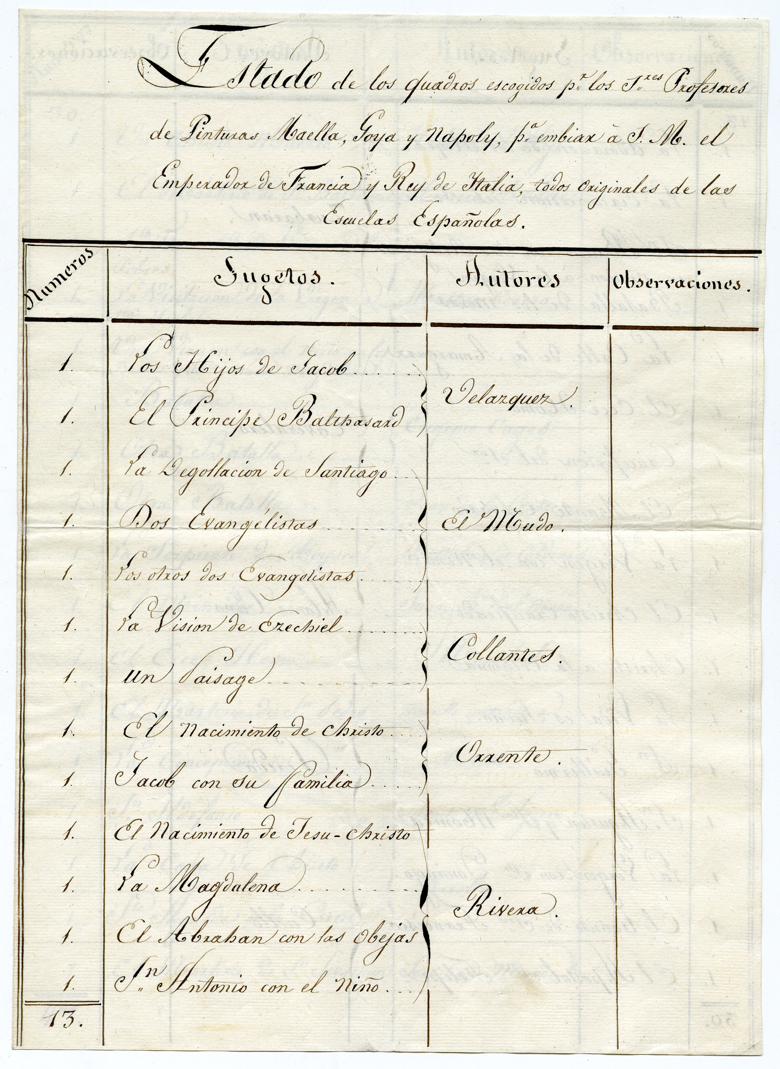 Estado de los quadros escogidos p.r los S.res Profesores
de Pinturas Maella, Goya y Napoly, p.a embiar à S. M. el
Emperador de Francia y Rey de Italia, todos originales de las
Escuelas Españolas.
Numeros Sugetos. Autores Observaciones.
1. Los Hijos de Jacob
Velazquez.
1. El Principe Balthasard
1. La Degollacion de Santiago
1. Dos Evangélistas El Mudo.
1. Los otros dos Evangelistas
1. La Vision de Ezechiel
Collantes.
1. Un Paisage
1. El Nacimiento de Christo
Orrente.
1. Jacob con su familia
1. El Nacimiento de Jesu-Christo
1. La Magdalena
Rivera.
1. El Abrahan con las Obejas
1. S.n Antonio con el Niño
13.